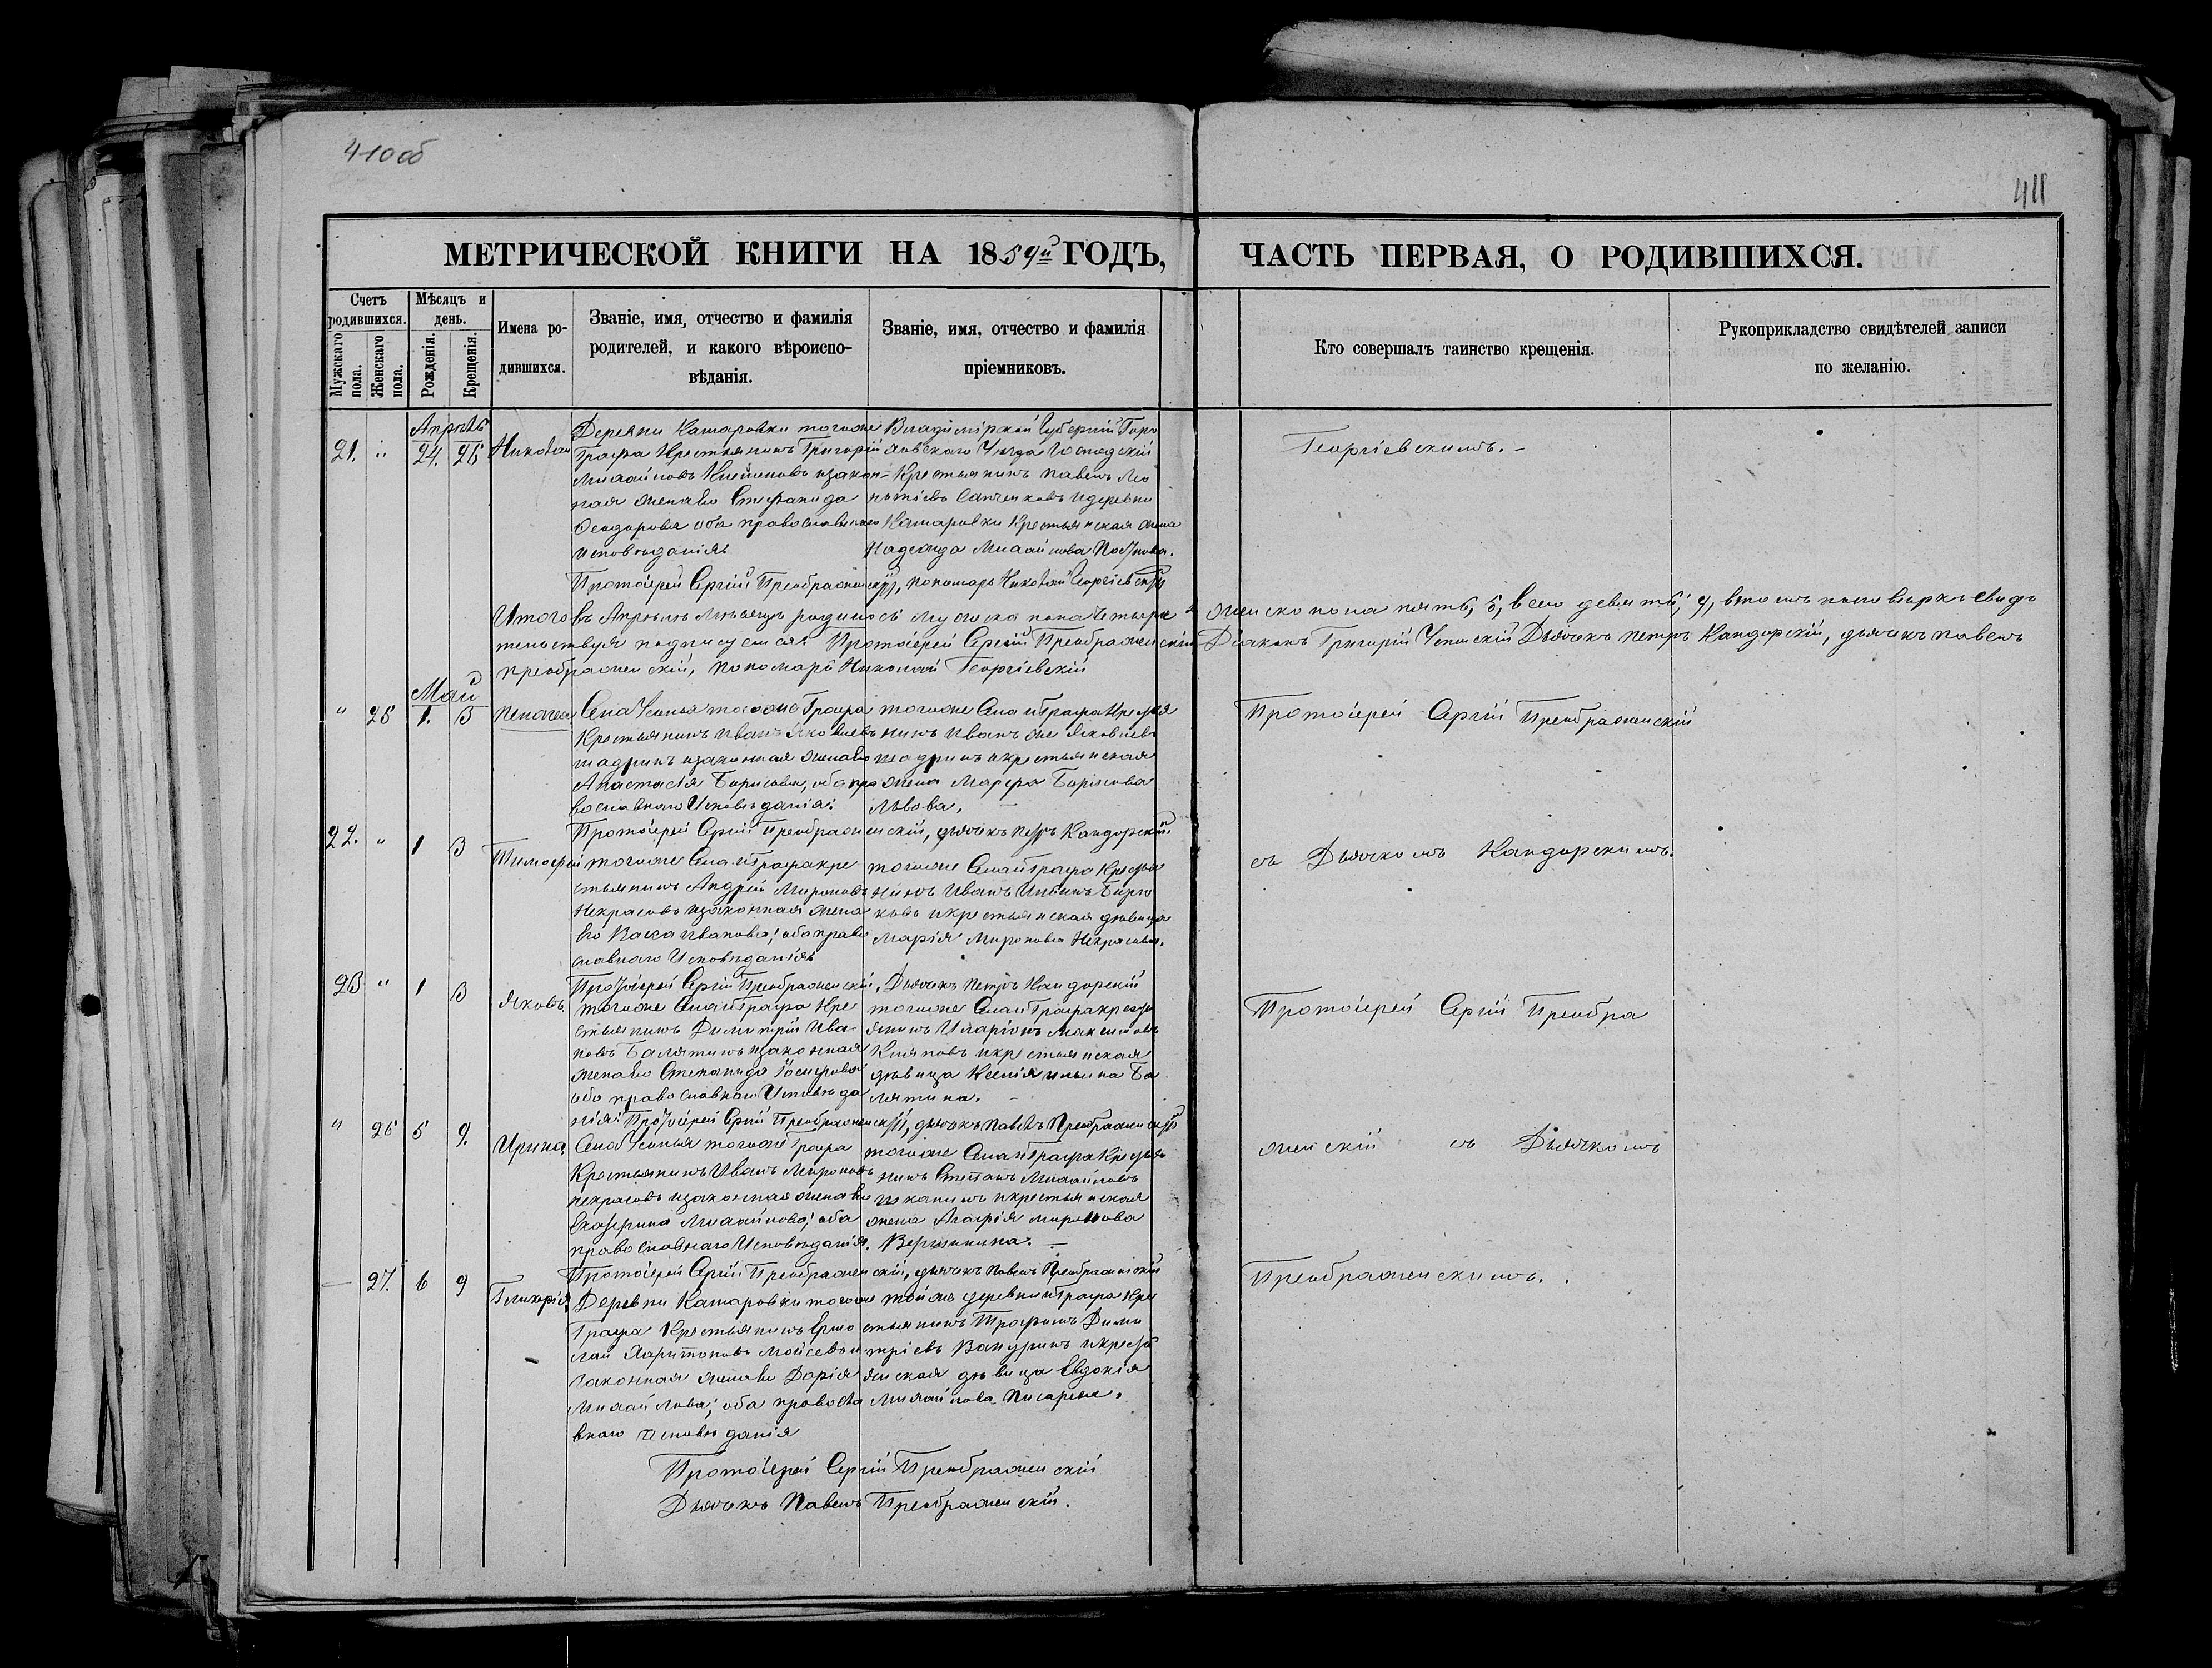 410об
411
МЕТРИЧЕСКОЙ КНИГИ НА 1859й ГОДЪ, ЧАСТЬ ПЕРВАЯ, О РОДИВШИХСЯ.
Счетъ родившихся.
Мужескаго пола.
Женскаго пола.
Мѣсяцъ и день.
Рожденія.
Крещенія.
Имена родившихся.
Званіе, имя, отчество и фамилія
родителей, и какого вѣроиспо-
вѣданія.
Званіе, имя, отчество и фамилія
пріемниковъ.
Кто совершалъ таинство крещенія.
Рукоприкладство свидѣтелей записи
по желанію.
Апрѣль
21. 24. 26 Николай
Деревни Камаровки тогоже
Графа Крестьянинъ Григорій
Михайловъ изакон-
ная жена его Стефанида
Феодорова оба православнаго
исповѣданія.
Владимірской Губерніи Горо
ховскаго Уѣзда Господскій
Крестьянинъ Павелъ
идеревни
Камаровки Крестьянская жена
Надежда Михайлова
Георгіевскимъ.
Протоіерей Сергій Преображенскій, пономарь Николай Георгіевскій
Итого въ Апрелѣ Мѣсяцѣ родилось Мужеска пола Четыре 4 женско пола пять, 5, всего девять, 9, втомъ поповеркѣ свидѣ
тельствуя подписуемся: Протоіерей Сергій Преображенскій Діаконъ Григорій Дьячекъ Петръ Кандорскій, дьячекъ павелъ
преображенскій, пономарь Николай Георгіевскій
Май
" 25 1. 3 Пелагея
Села тогоже Графа
Крестьянинъ Иванъ Яковлевъ
шадринъ изаконная женаего
Анастасія Борисова, оба пра
вославнаго Исповѣданія.
тогоже Села и Графа Крестья
нинъ Иванъ же Яковлевъ
шадринъ икрестьянская
жена Марфа Борисова
Львова.
Протоіерей Сергій Преображенскій
Протоіерей Сергій Преображенскій, дьячекъ Петръ Кандорскій
22. " 1 3 Тимофей
тогоже Села и Графа кре
стьянинъ Андрей Мироновъ
Некрасовъ изаконная жена
его Васса Иванова; оба право
славнаго Исповѣданія
тогоже Села и Графа Крестья
нинъ Иванъ
икрестьянская дѣвица
Марія Миронова Некрасова.
съ Дьячкомъ Кандорскимъ.
Протоіерей Сергій Преображенскій, Дьячекъ Петръ Кандорскій
23 " 1 3 Яковъ
тогоже Села и Графа Кре
стьянинъ Димитрій Ива-
новъ Балятинъ изаконная
женаего Степанида
оба православнаго Исповѣда
нія
тогоже Села и Графа кресть
янинъ Иларіонъ Максимовъ
икрестьянская
дѣвица Ксенія Ильина Ба
лятина.
Протоіерей Сергій Преобра
Протоіерей Сергій Преображенскій, дьячекъ Павелъ Преображенскій
" 26 5 9. Ирина
Села тогоже Графа
Крестьянинъ Иванъ Мироновъ
некрасовъ изаконная женаего
Екатерина Михайлова; оба
православнаго Исповѣданія.
тогоже Села и Графа Крестья
нинъ Степанъ Михайловъ
икрестьянская
жена Агафія миронова
Вершинина.
женскій съ Дьячкомъ
Протоіерей Сергій Преображенскій, дьячекъ Павелъ Преображенскій
— 27. 6 9 Гликерія
Деревни Камаровки тогоже
Графа Крестьянинъ Ермо
лай Харитоновъ Мойсевъ и
законная жена его Дарія
Михайлова; оба правосла
внаго исповѣданія
тойже деревни и Графа Кре
стьянинъ Трофимъ Дими
тріевъ икресть
янская дѣвица Евдокія
Михайлова
Преображенскимъ.
Протоіерей Сергій Преображенскій
Дьячекъ Павелъ Преображенскій.